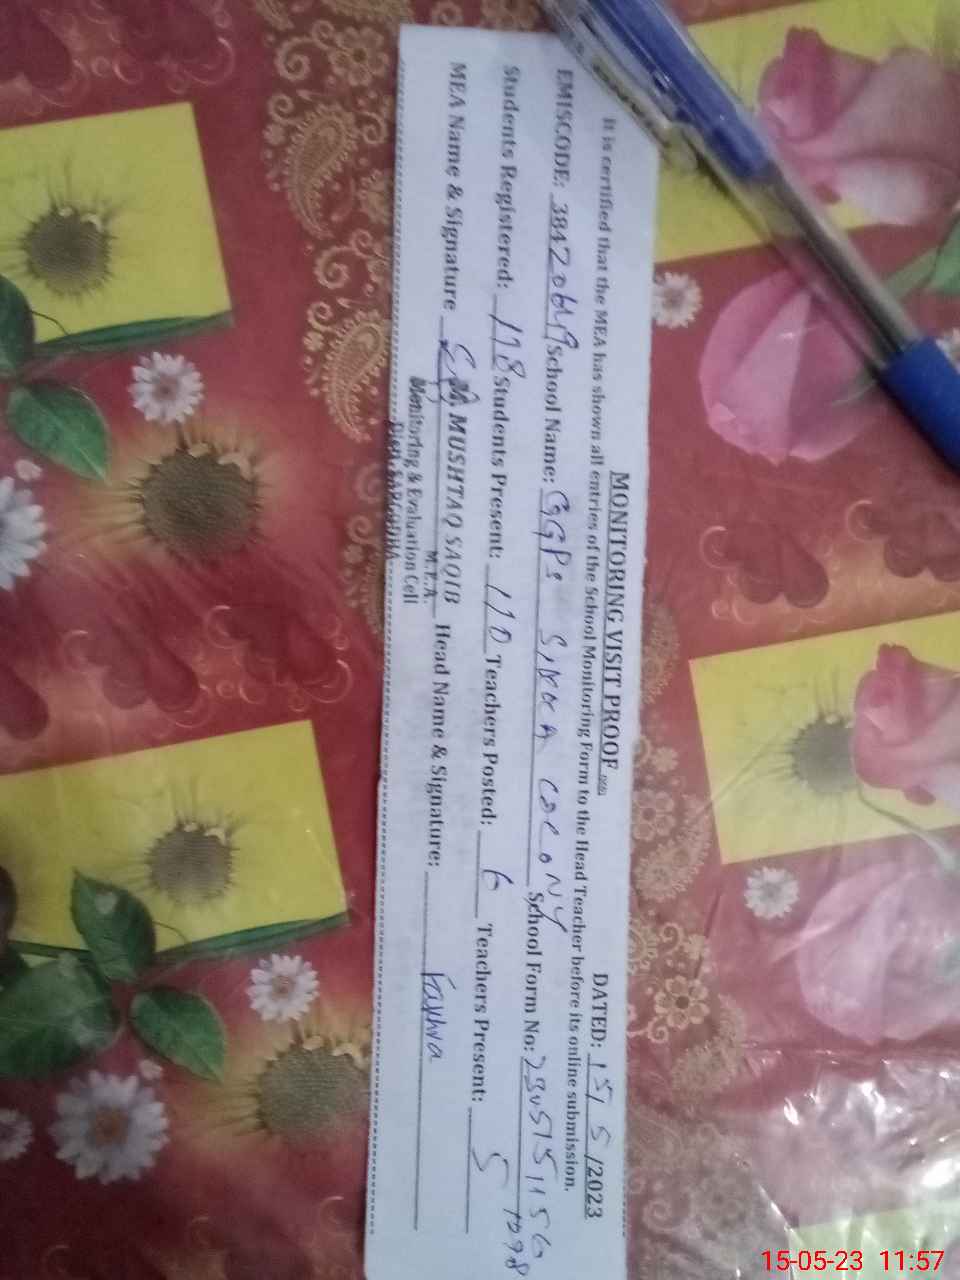 MONITORING VISIT PROOF DATED: 15/5/2023
It is certified that the MEA has shown all entries of the School Monitoring Form to the Head Teacher before its online submission.
EMISCODE: School Name: GGPS COLONY School Form No:
Students Registered: 118 Students Present: 110 Teachers Posted: 6 Teachers Present: 5
MEA Name & Signature M. MUSHTAQ SAQIB Head Name & Signature:
M.E.A.
Monitoring & Evaluation Cell
Distt. SARGODHA
15-05-23 11:57